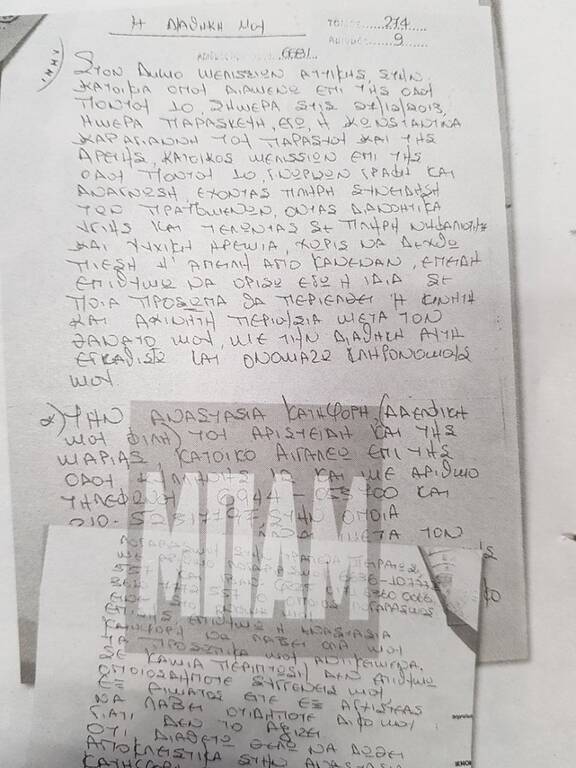 Η ΔΙΑΘΗΚΗ ΜΟΥ
274
9
6681
ΣΤΟΝ ΔΗΜΟ ΜΕΛΙΣΣΙΩΝ ΑΤΤΙΚΗΣ, ΣΤΗΝ
ΚΑΤΟΙΚΙΑ ΟΠΟΥ ΔΙΑΜΕΝΩ ΕΠΙ ΤΗΣ ΟΔΟΥ
ΠΟΝΤΟΥ 10, ΣΗΜΕΡΑ ΣΤΙΣ 27/12/2013,
ΗΜΕΡΑ ΠΑΡΑΣΚΕΥΗ, ΕΓΩ, Η ΚΩΝΣΤΑΝΤΙΝΑ
ΚΑΡΑΓΙΑΝΝΗ ΤΟΥ ΚΑΙ ΤΗΣ
ΑΡΕΤΗΣ, ΚΑΤΟΙΚΟΣ ΜΕΛΙΣΣΙΩΝ ΕΠΙ ΤΗΣ
ΟΔΟΥ ΠΟΝΤΟΥ 10, ΓΝΩΡΙΖΩΝ ΓΡΑΦΗ ΚΑΙ
ΑΝΑΓΝΩΣΗ, ΕΧΟΝΤΑΣ ΠΛΗΡΗ ΣΥΝΕΙΔΗΣΗ
ΤΩΝ ΠΡΑΤΤΟΜΕΝΩΝ, ΟΝΤΑΣ ΔΙΑΝΟΗΤΙΚΑ
ΥΓΙΗΣ ΚΑΙ ΤΕΛΩΝΤΑΣ ΣΕ ΠΛΗΡΗ ΝΗΦΑΛΙΟΤΗΤΑ
ΚΑΙ ΨΥΧΙΚΗ ΗΡΕΜΙΑ, ΧΩΡΙΣ ΝΑ ΔΕΧΘΩ
ΠΙΕΣΗ Η' ΑΠΕΙΛΗ ΑΠΟ ΚΑΝΕΝΑΝ, ΕΠΕΙΔΗ
ΕΠΙΘΥΜΩ ΝΑ ΟΡΙΣΩ ΕΓΩ Η ΙΔΙΑ ΣΕ
ΠΟΙΑ ΠΡΟΣΩΠΑ ΘΑ ΠΕΡΙΕΛΘΕΙ Η ΚΙΝΗΤΗ
ΚΑΙ ΑΚΙΝΗΤΗ ΠΕΡΙΟΥΣΙΑ ΜΕΤΑ ΤΟΝ
ΘΑΝΑΤΟ ΜΟΥ, ΜΕ ΤΗΝ ΔΙΑΘΗΚΗ ΑΥΤΗ
ΕΓΚΑΘΙΣΤΩ ΚΑΙ ΟΝΟΜΑΖΩ ΚΛΗΡΟΝΟΜΟΥΣ
ΜΟΥ
α) ΤΗΝ ΑΝΑΣΤΑΣΙΑ ΚΑΤΗΦΟΡΗ, (ΑΔΕΛΦΙΚΗ
ΜΟΥ ΦΙΛΗ) ΤΟΥ ΑΡΙΣΤΕΙΔΗ ΚΑΙ ΤΗΣ
ΜΑΡΙΑΣ ΚΑΤΟΙΚΟ ΑΙΓΑΛΕΩ ΕΠΙ ΤΗΣ
ΟΔΟΥ ΚΑΙ ΜΕ ΑΡΙΘΜΟ
ΤΗΛΕΦΩΝΟΥ 6944- ΚΑΙ
210- ΣΤΗΝ ΟΠΟΙΑ
ΜΕΤΑ ΤΟΝ
ΜΠΑΜ
ΣΤΗΝ ΤΡΑΠΕΖΑ ΠΕΙΡΑΙΩΣ
ΕΠΙΣΗΣ ΕΠΙΘΥΜΩ Η ΑΝΑΣΤΑΣΙΑ
ΚΑΤΗΦΟΡΗ ΝΑ ΛΑΒΕΙ ΟΛΑ ΜΟΥ
ΤΑ ΠΡΟΣΩΠΙΚΑ ΜΟΥ ΑΝΤΙΚΕΙΜΕΝΑ.
ΣΕ ΚΑΜΙΑ ΠΕΡΙΠΤΩΣΗ ΔΕΝ ΕΠΙΘΥΜΩ
ΟΠΟΙΟΣΔΗΠΟΤΕ ΣΥΓΓΕΝΕΙΣ ΜΟΥ
ΕΞ ΑΙΜΑΤΟΣ ΕΙΤΕ ΕΞ ΑΓΧΙΣΤΕΙΑΣ
ΝΑ ΛΑΒΕΙ ΟΤΙΔΗΠΟΤΕ ΔΙΚΟ ΜΟΥ
ΓΙΑΤΙ ΔΕΝ ΤΟ ΑΞΙΖΕΙ
ΟΤΙ ΔΙΑΘΕΤΩ ΘΕΛΩ ΝΑ ΔΟΘΕΙ
ΑΠΟΚΛΕΙΣΤΙΚΑ ΣΤΗΝ ΑΝΑΣΤΑΣΙΑ
ΚΑΤΗΦΟΡΗ